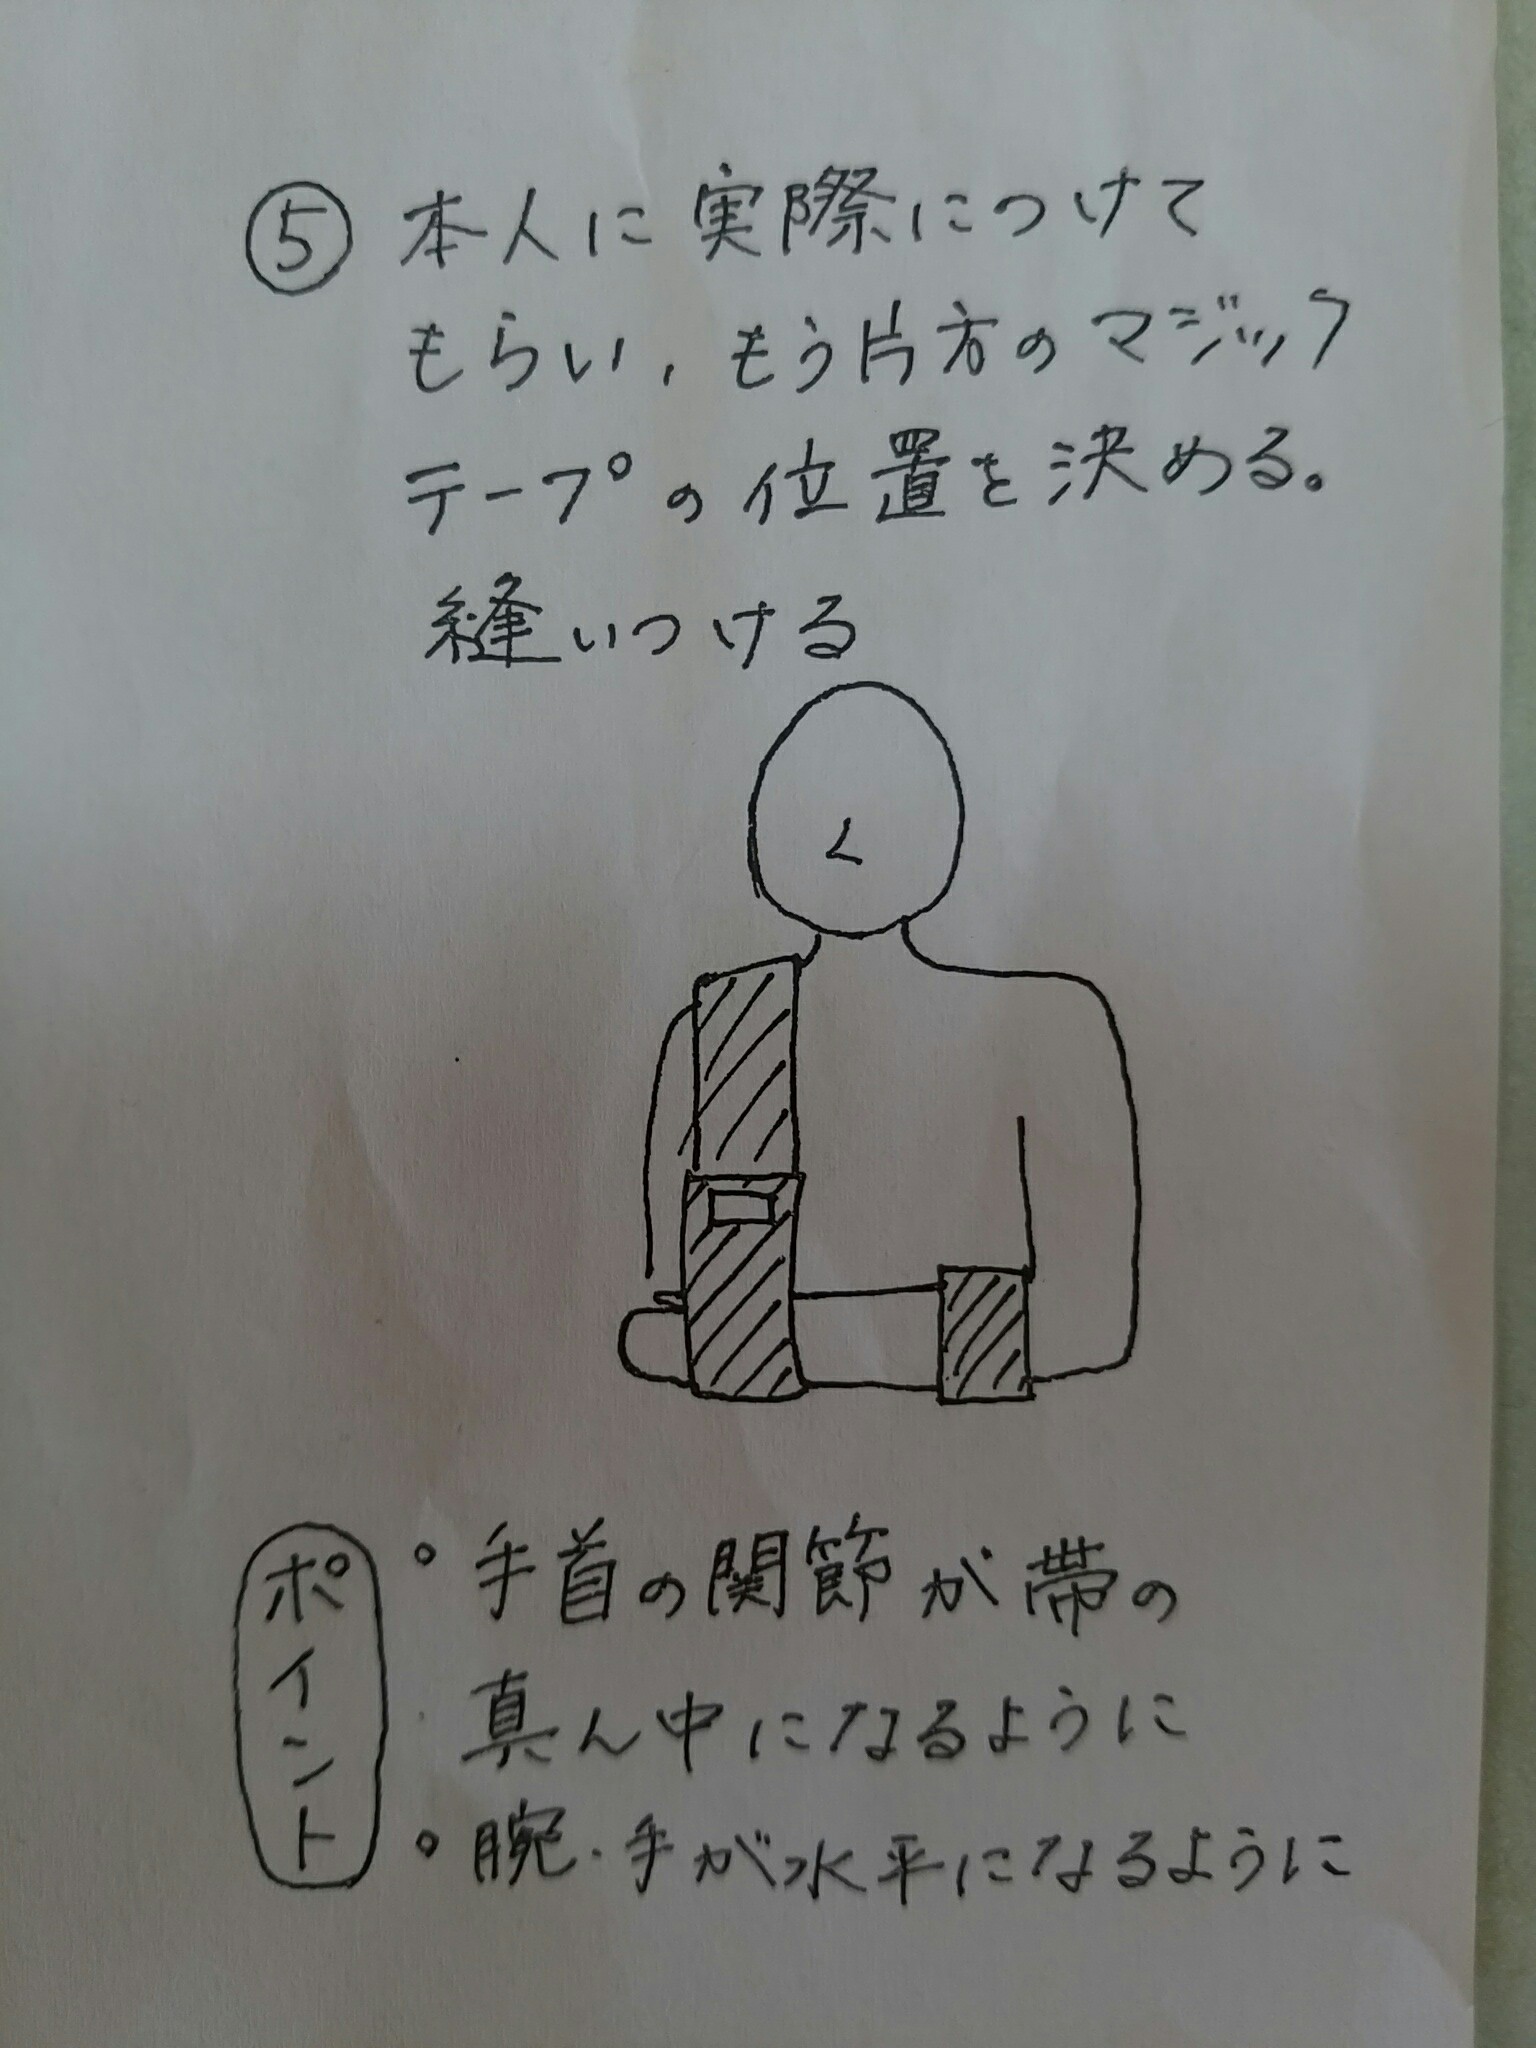 ⑤ 本人に実際につけて
もらい、もう片方のマジック
テープの位置を決める。
縫いつける
ポイント
○ 手首の関節が帯の
真ん中になるように
○ 腕・手が水平になるように